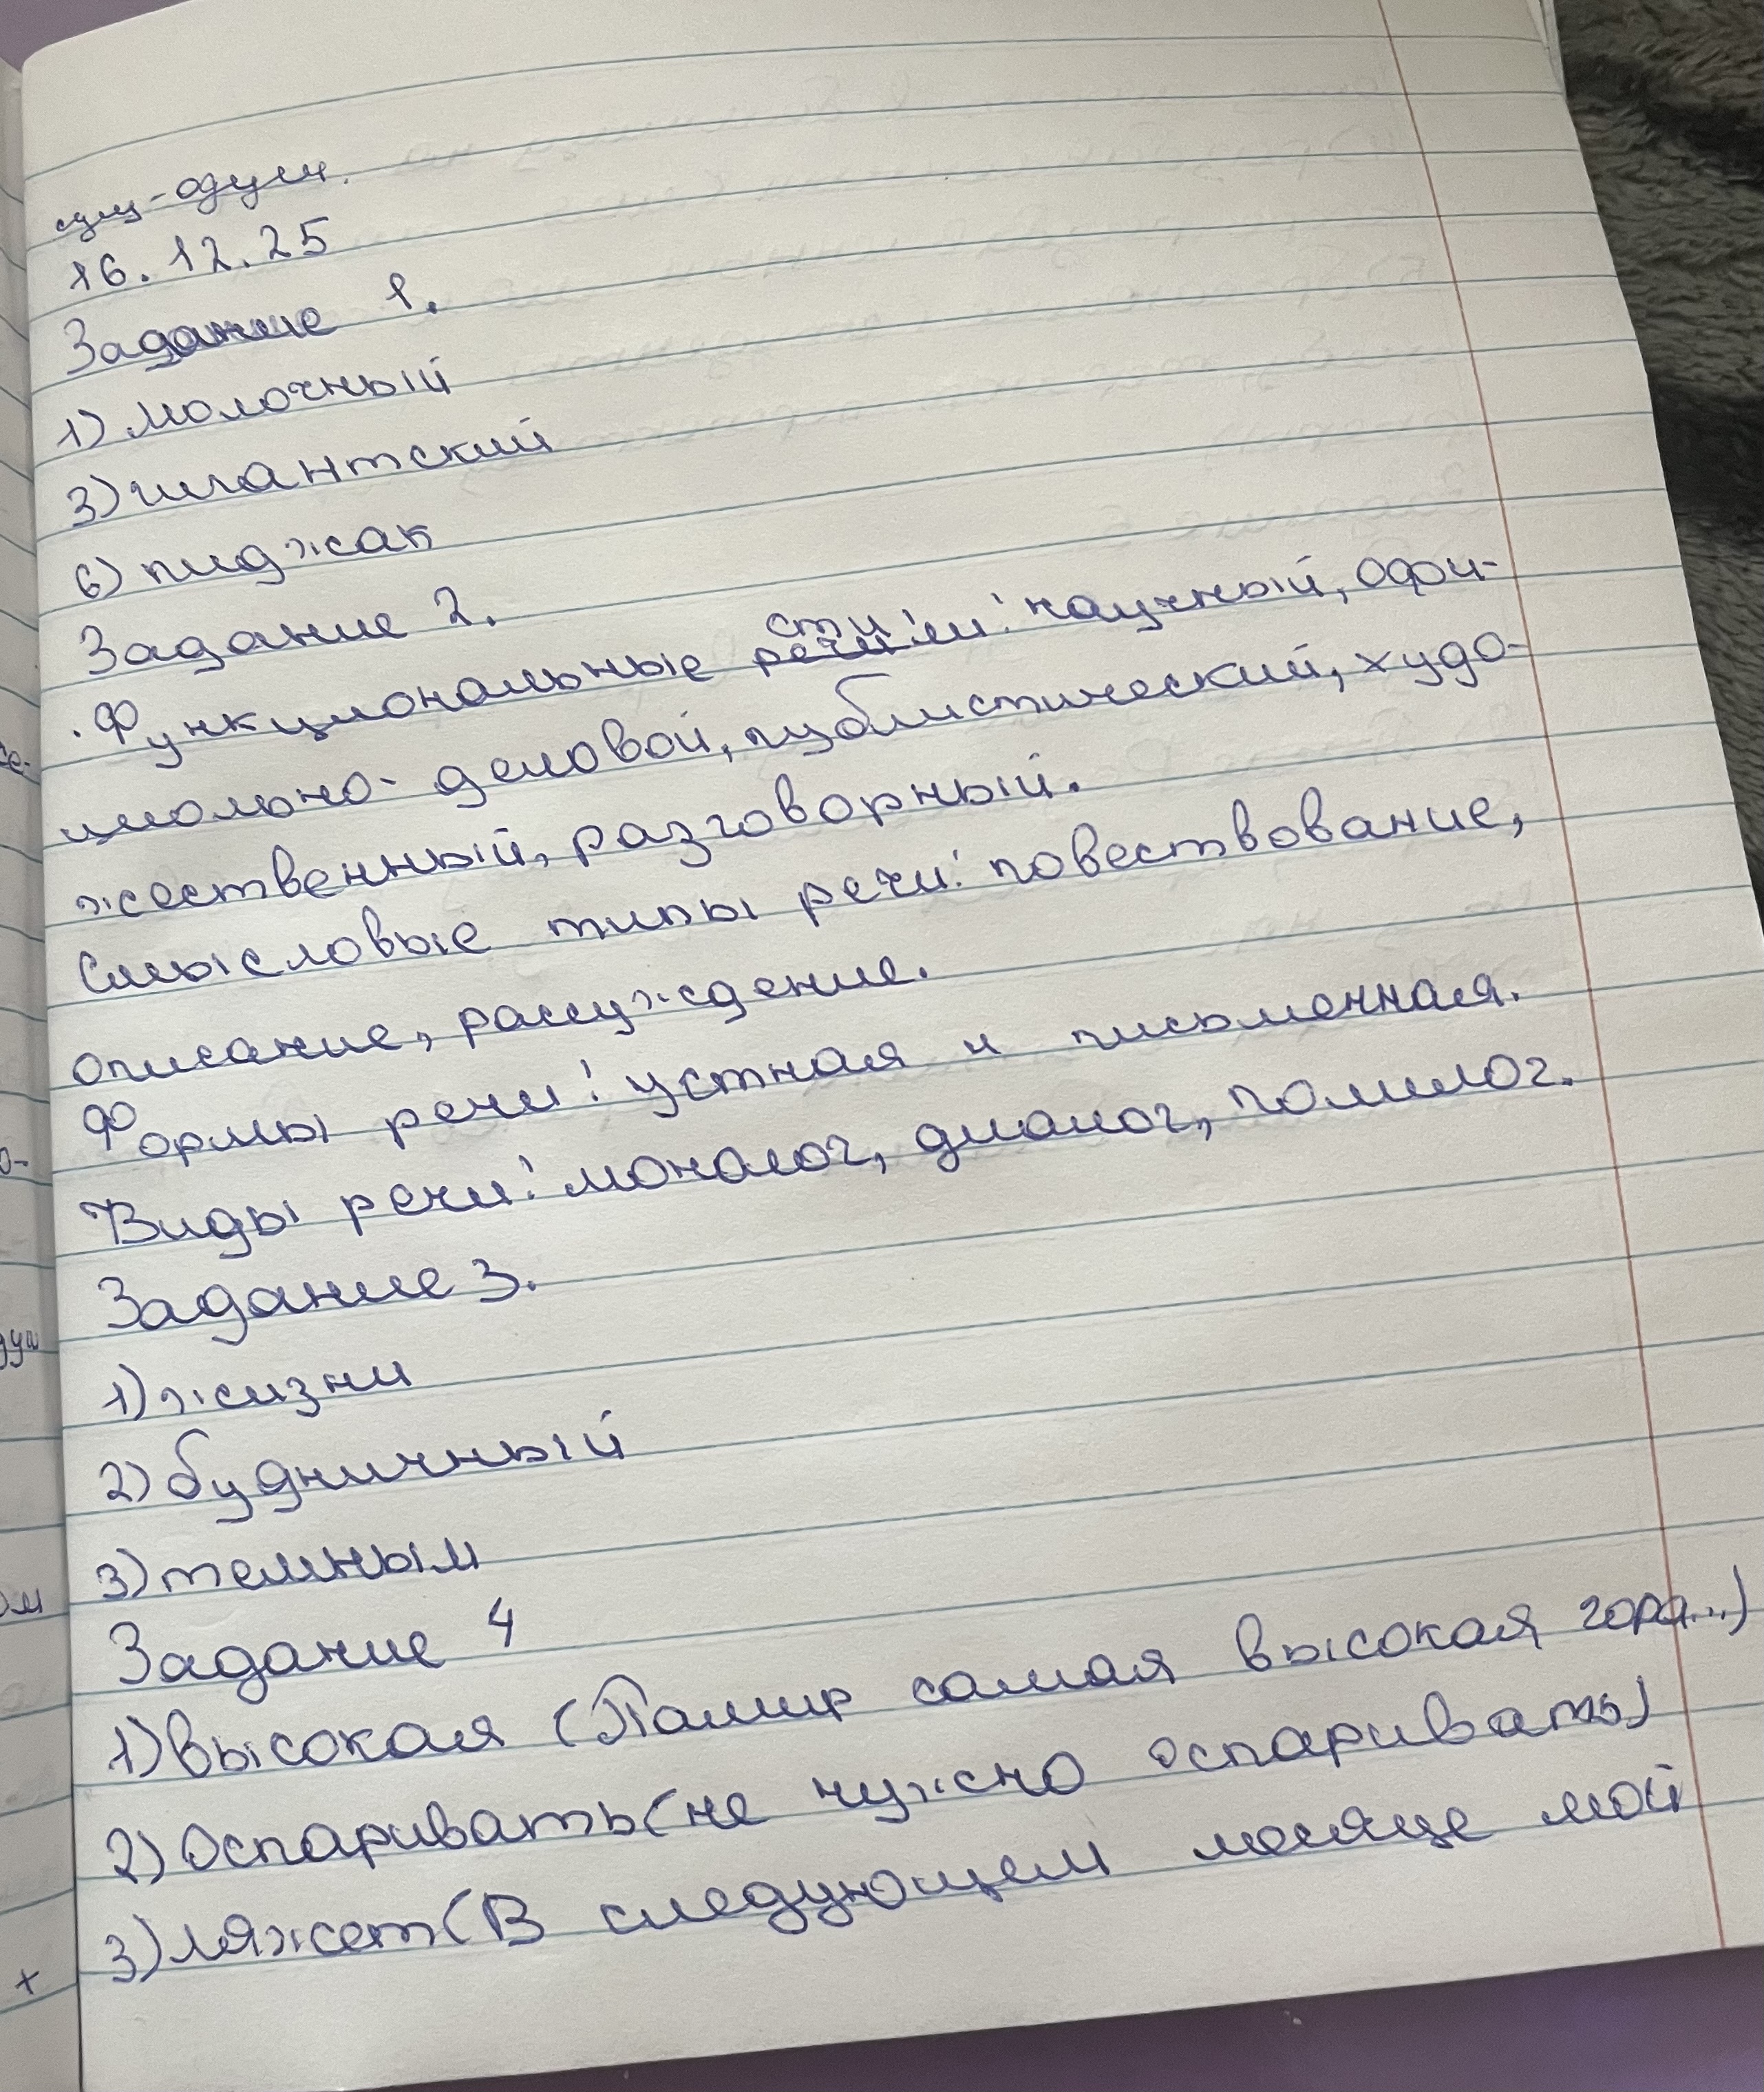 сущ-одуш.
16.12.25
Задание 1.
1) молочный
3) гигантский
6) пиджак
Задание 2.
Функциональные стили: научный, офи-
циально-деловой, публистический, худо-
жественный, разговорный.
Смысловые типы речи: повествование,
описание, рассуждение.
Формы речи: устная и письменная.
Виды речи: монолог, диалог, полилог.
Задание 3.
1) жизни
2) будничный
3) темным
Задание 4
1) высокая (Памир самая высокая гора...)
2) Оспаривать (не нужно оспаривать)
3) ляжет (В следующем месяце мой